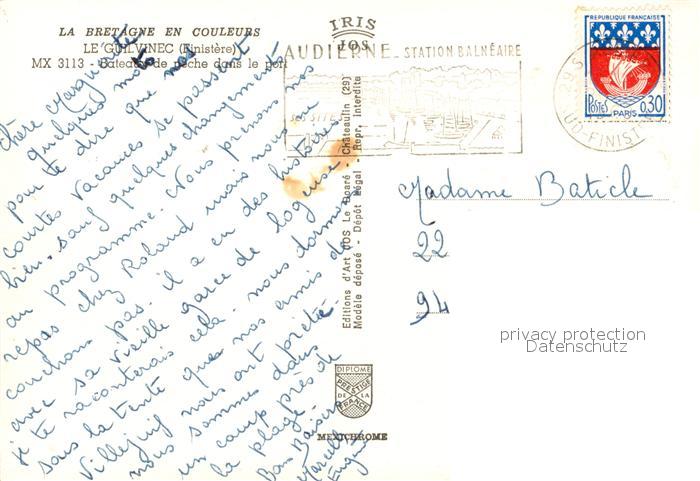 LA BRETAGNE EN COULEURS
LE GUILVINEC (Finistère)
MX 3113 - Bateaux de pêche dans le port
IRIS
JOS
AUDIERNE - STATION BALNÉAIRE
SES SITES
REPUBLIQUE FRANÇAISE
POSTES
0,30
PARIS
29 S
UD-FINIST
Chère Marguerite
quelques mots
pour te dire que nos
courtes vacances se passent
bien. sauf quelques changement
au programme. Nous prenons nos
repas chez Roland mais nous ne
couchons pas. il a eu des histoires
avec sa vieille garce de logeuse
je te raconterais cela. nous dormons
sous la tente que nos amis de
Villejuif nous ont prêté
nous sommes dans
un camp près de
la plage.
Bons Baisers
Marcelle
Eugène
Editions d'Art JOS Le Doaré - Châteaulin (29)
Modèle déposé - Dépôt légal - Repr. interdite
Madame Baticle
22
94
privacy protection
Datenschutz
DIPLOME
PRESTIGE
DE LA
FRANCE
MEXICHROME